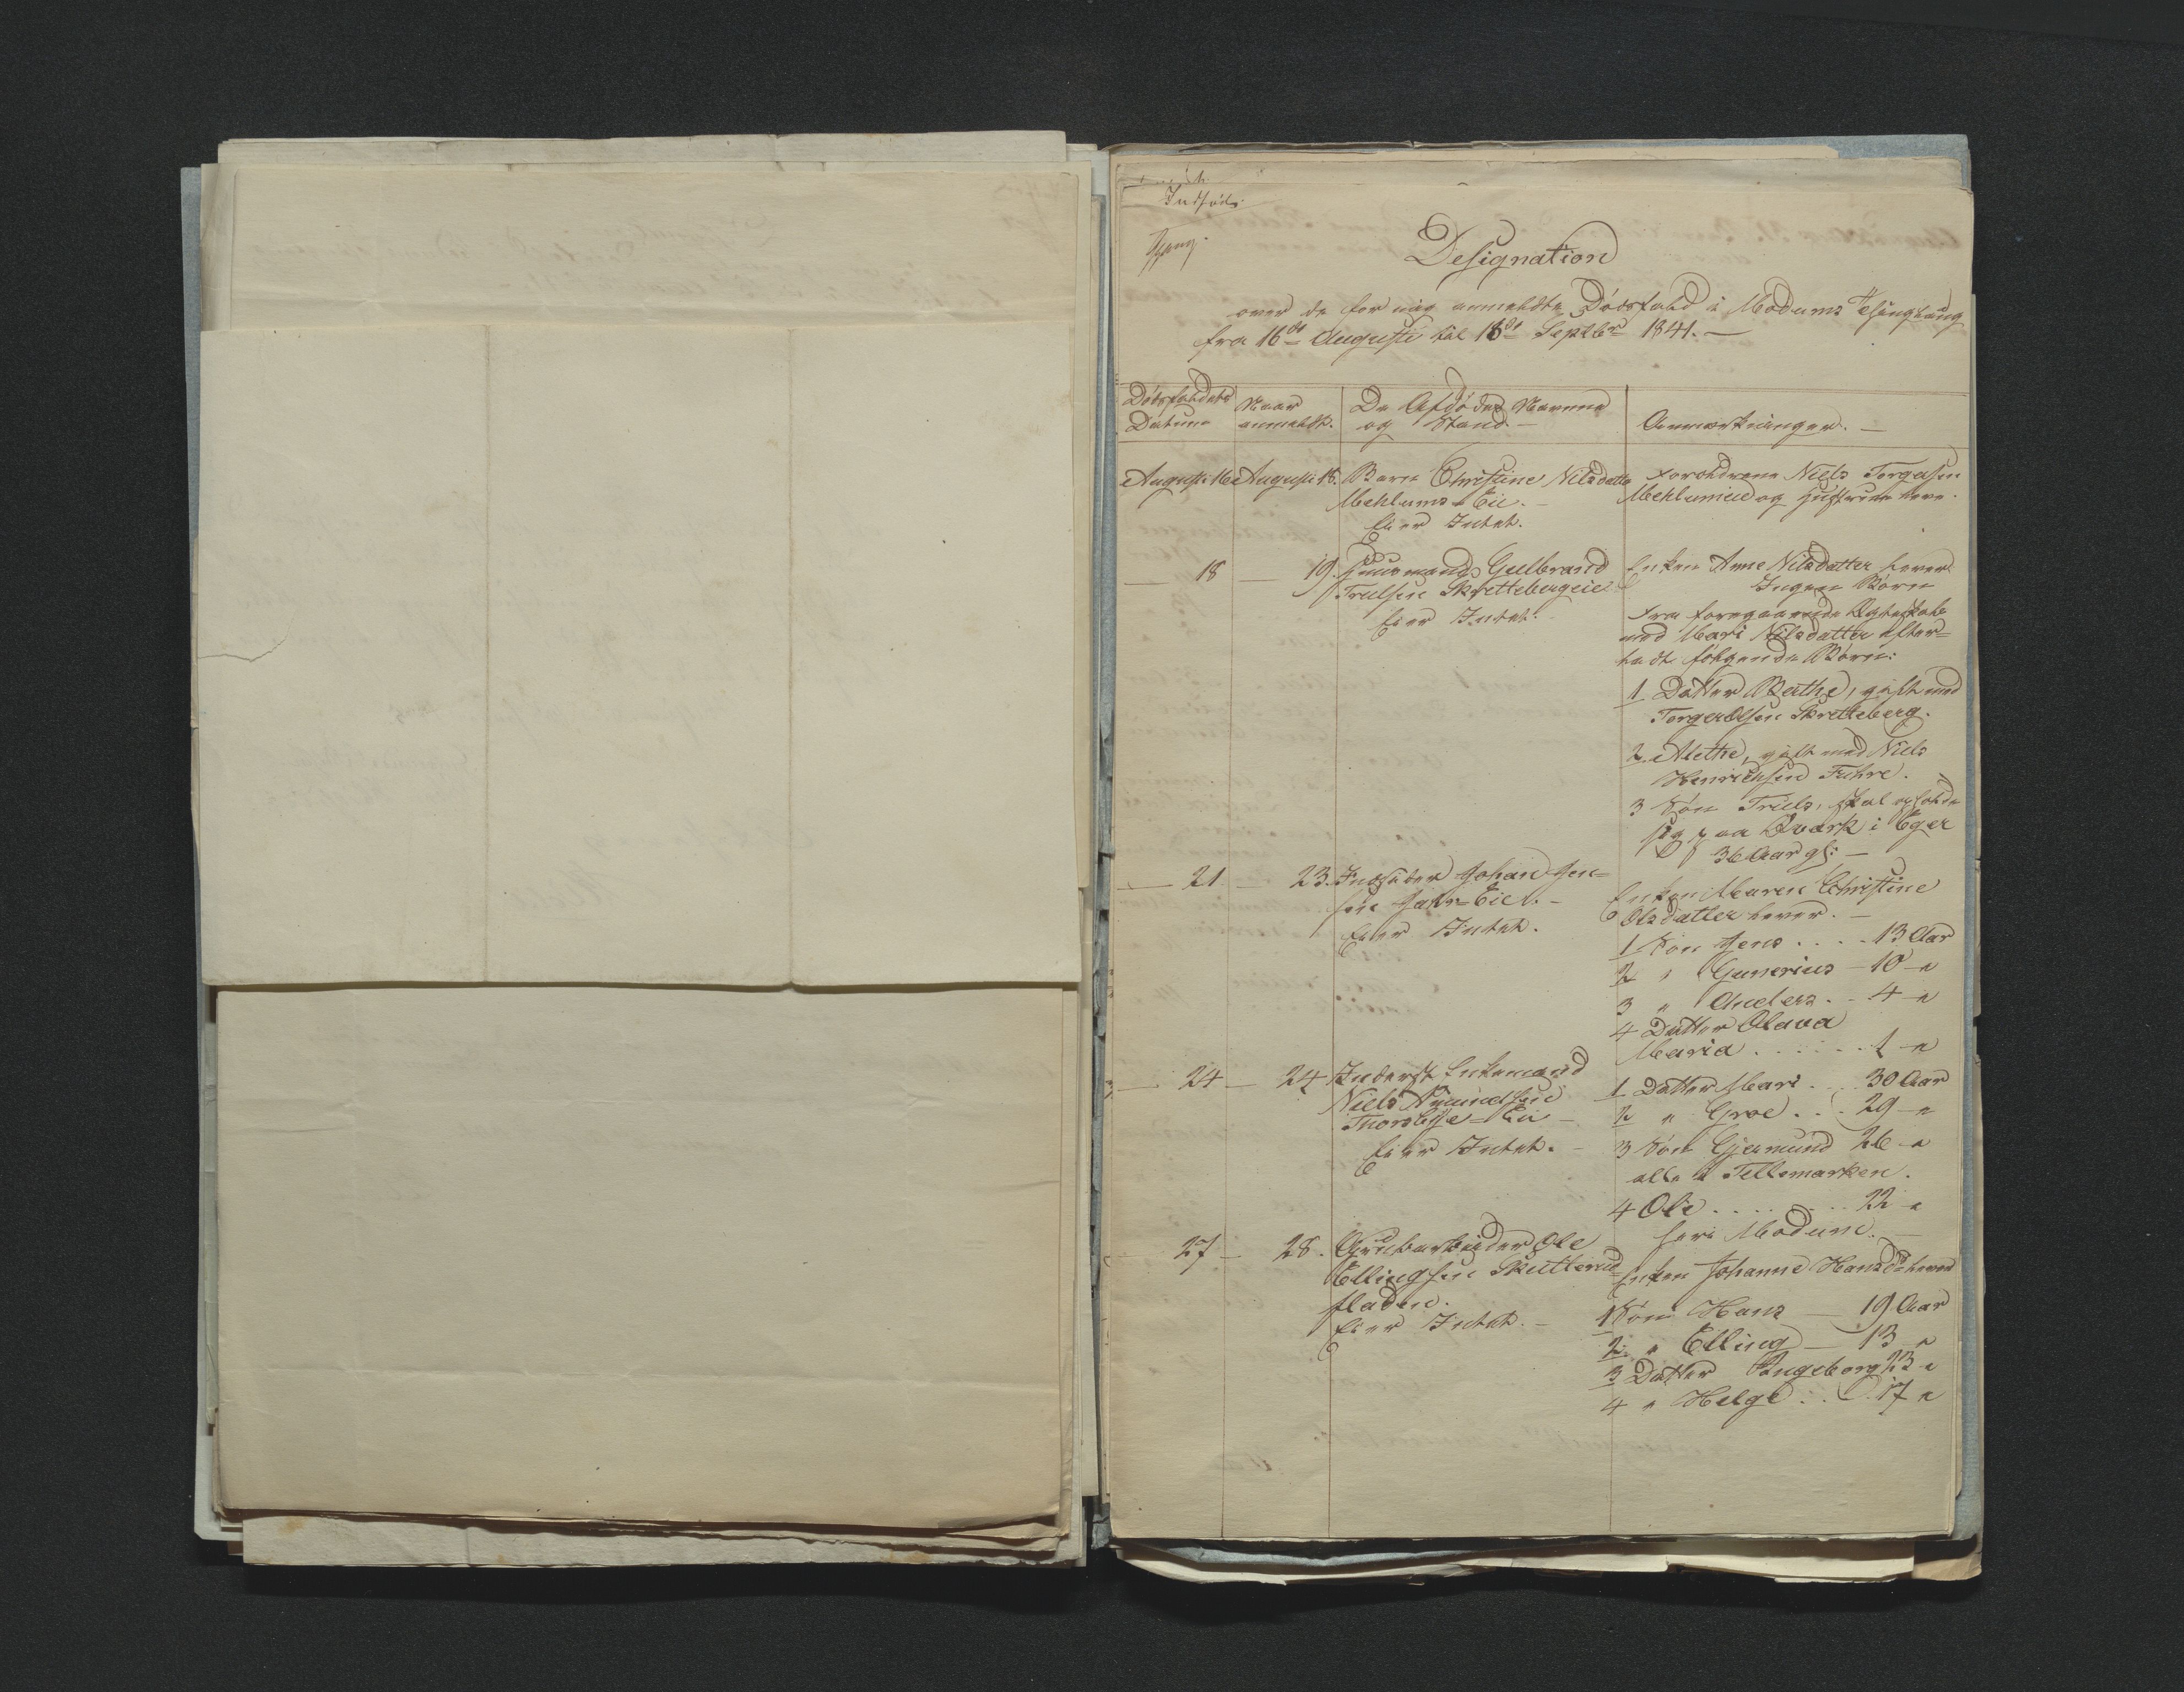 Indførdt
Designation
over de for mig anmeldte Dødsfald i Modums Thinglaug
fra 16de Augusti til 18de Septbr 1841. —
Dødsfaldets
Datum
Naar
anmeldt.
De Afdødes Navne
og Stand. —
Anmærkninger. —
Augusti 16 Augusti 18. Barn Christine Nilsdatter
Mehlums Eie. —
Eier Intet.
Forældrene Niels Torgersen
Mehlumeie og Hustrue leve.
— 18 — 19. Huusmand Gulbrand
Trulsen Skrettebergeie
Eier Intet.
Enken Anne Nilsdatter lever
Ingen Børn
fra foregaaende Ægteskab
med Mari Nilsdatter efter=
ladt følgende Børn:
1 Datter Berthe, gift med
Torger Olsen Skretteberg.
2 Alethe, gift med Niels
Henriksen Fuhre.
3 Søn Truls, skal opholde
sig paa Qværk i Eger
36 Aar gl: —
— 21 — 23. Indsidder Johan Jen=
sen Jahr=Eie. —
Eier Intet.
Enken Maren Christine
Olsdatter lever. —
1 Søn Jens . . . . 13 Aar
2 " Gunerius — 10 —"
3 " Anders . — 4 —"
4 Datter Olava
Maria . . . . . . 1 —"
— 24 — 24 Inderst Enkemand
Niels Amundsen
Thorsbye=Eie —
Eier Intet. —
1 Datter Mari . . . 30 Aar
2 " Groe . . . 29 —"
3 Søn Gjermund 26 —"
alle i Tellemarken.
4 Ole . . . . . . . 22 —"
her i Modum. —
27 — 28. Grubearbeider Ole
Ellingsen Skutterud=
fladen.
Eier Intet. —
Enken Johanne Hansd: lever
1 Søn Hans — 19 Aar
2 " Elling — 13 "
3 Datter Ingeborg 23 "
4 " Helge . . . 17 "